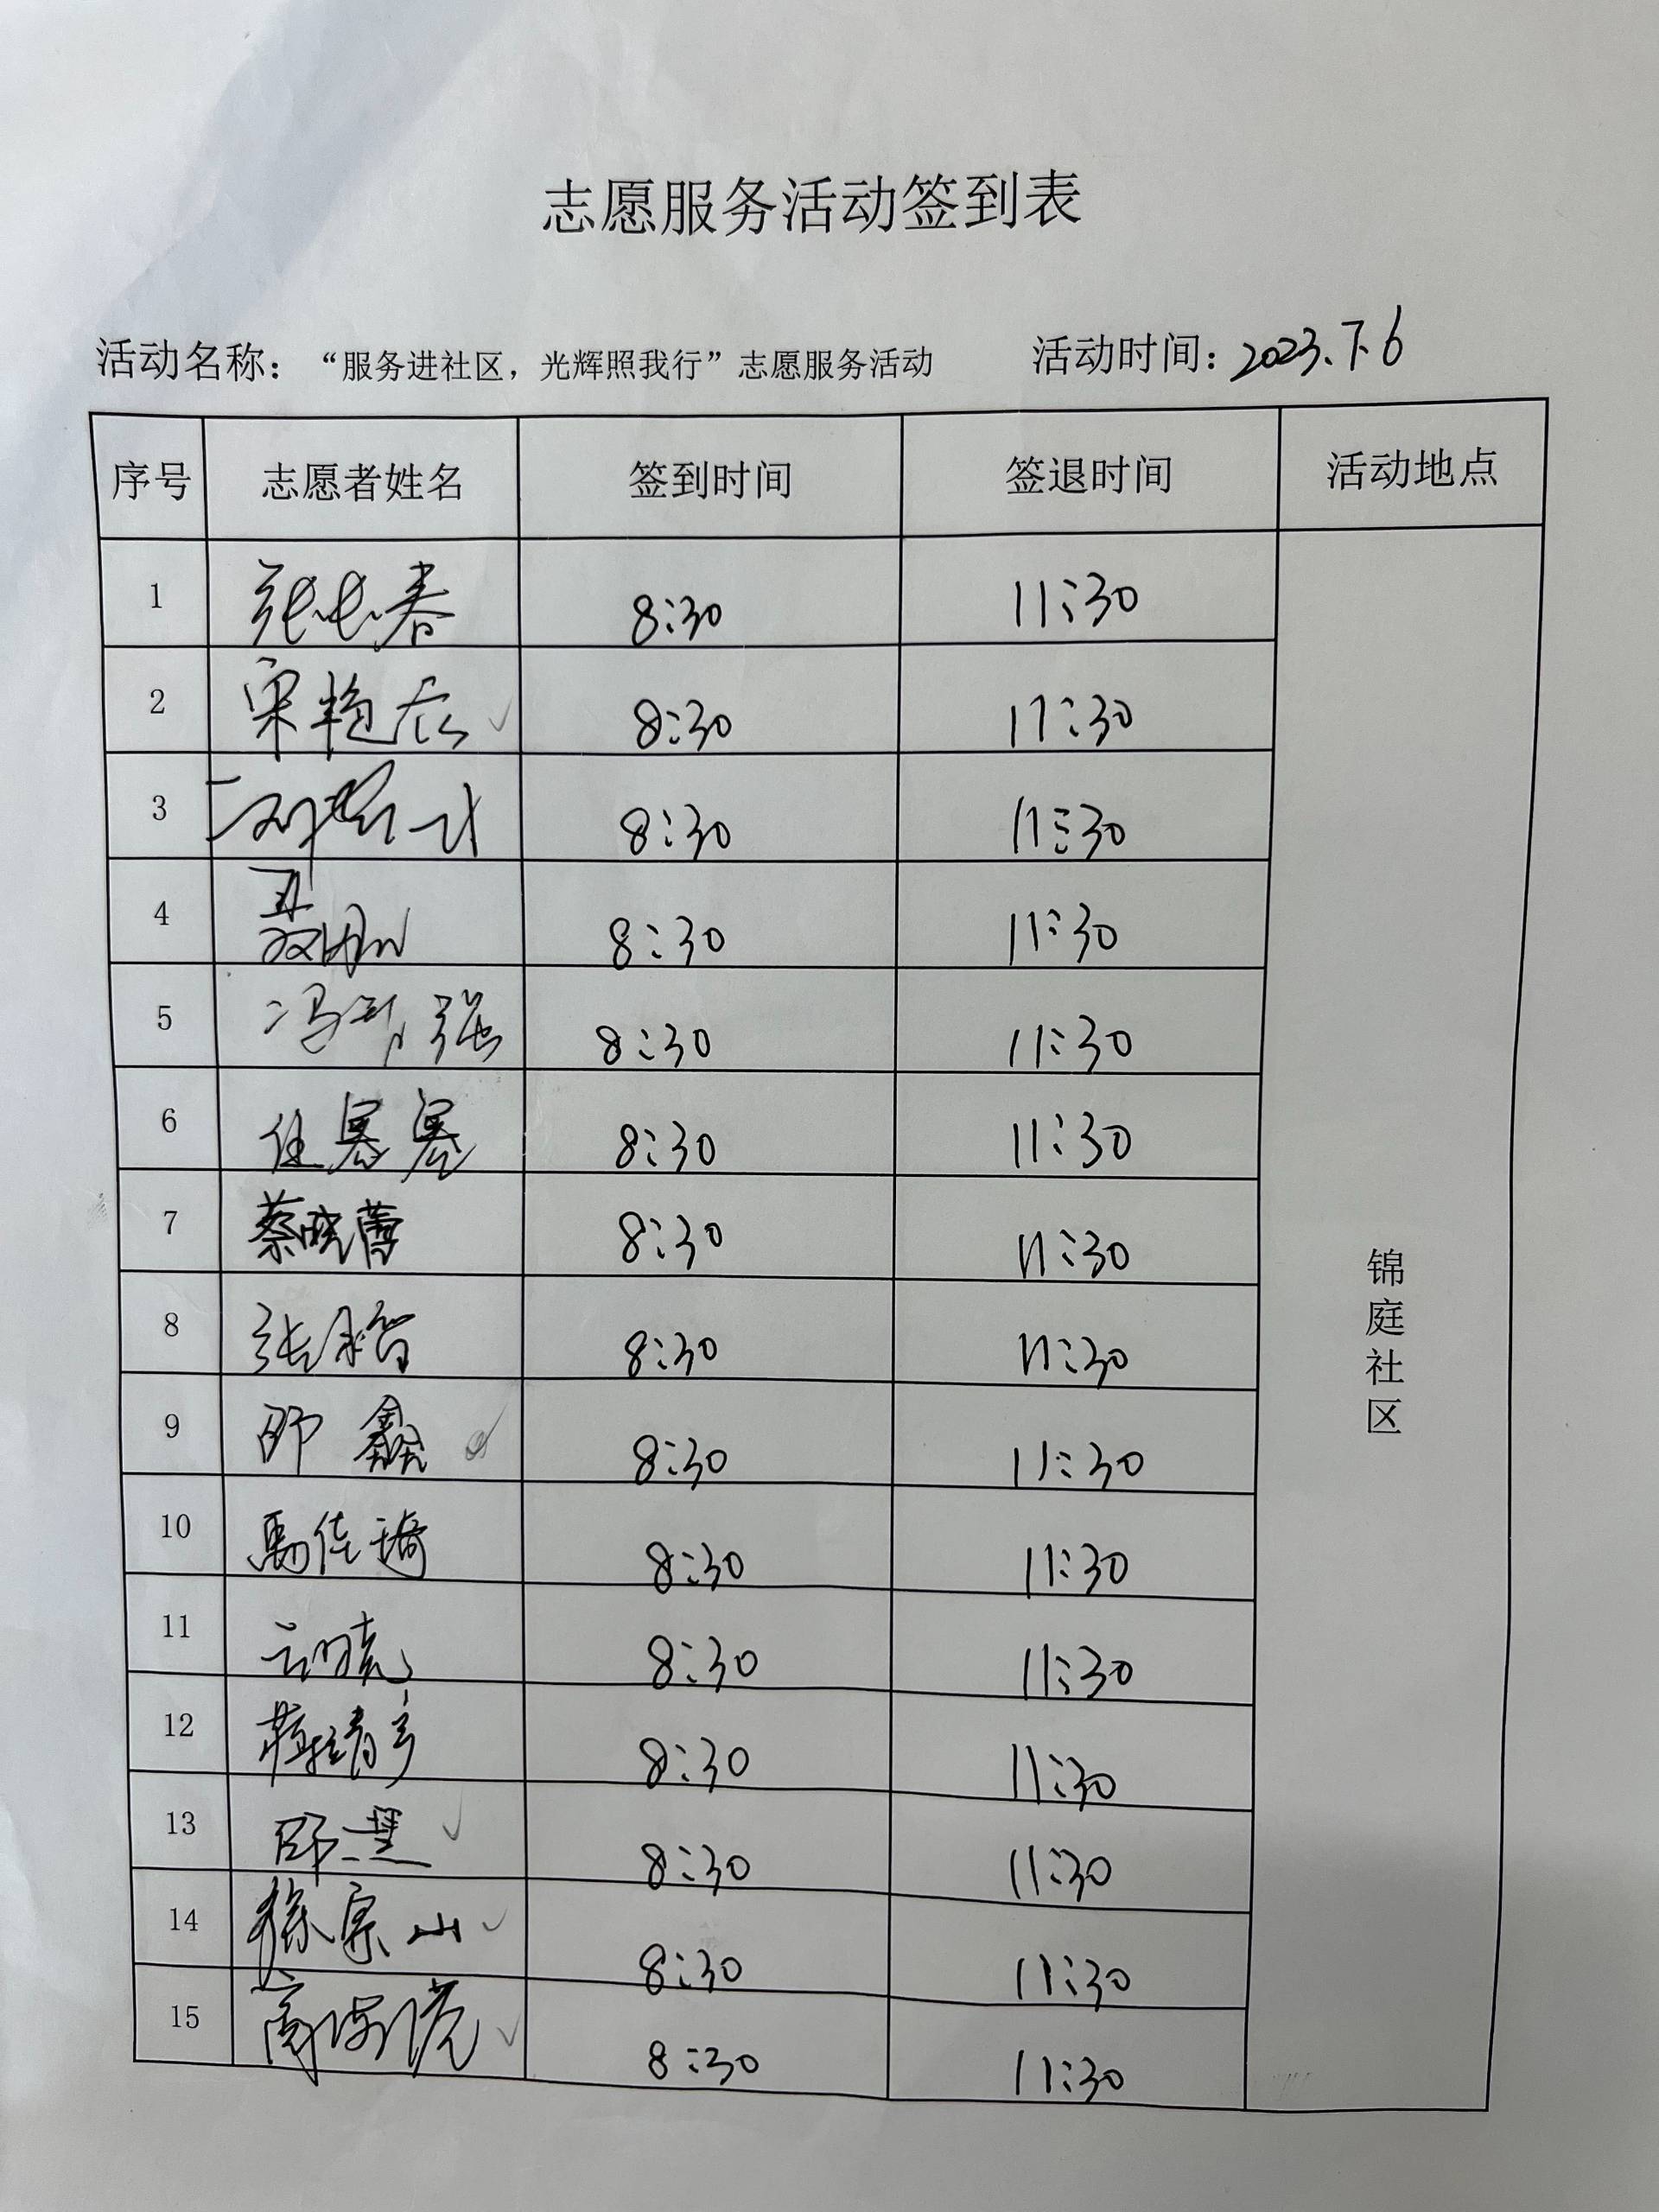 志愿服务活动签到表
活动名称：“服务进社区，光辉照我行”志愿服务活动 活动时间：2023.7.6
序号 志愿者姓名 签到时间 签退时间 活动地点
1 张长春 8:30 11:30
2 宋艳 8:30 11:30
3 8:30 11:30
4 聂 8:30 11:30
5 冯 强 8:30 11:30
6 任寒寒 8:30 11:30
7 蔡晓蕾 8:30 11:30
8 张 8:30 11:30
9 邵鑫 8:30 11:30
10 馬佳琦 8:30 11:30
11 8:30 11:30
12 8:30 11:30
13 邵 8:30 11:30
14 徐宗山 8:30 11:30
15 8:30 11:30
锦庭社区